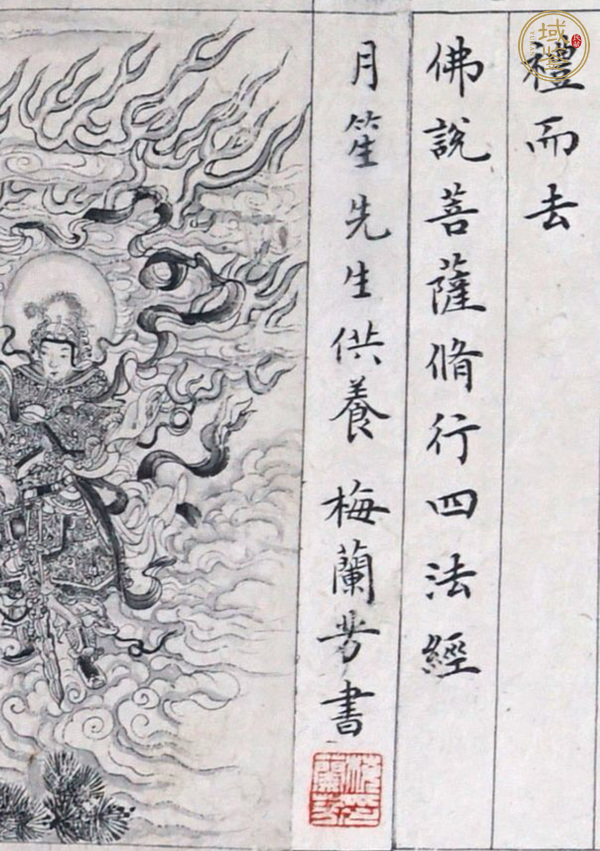 禮而去
佛說菩薩脩行四法經
月笙先生供養 梅蘭芳書